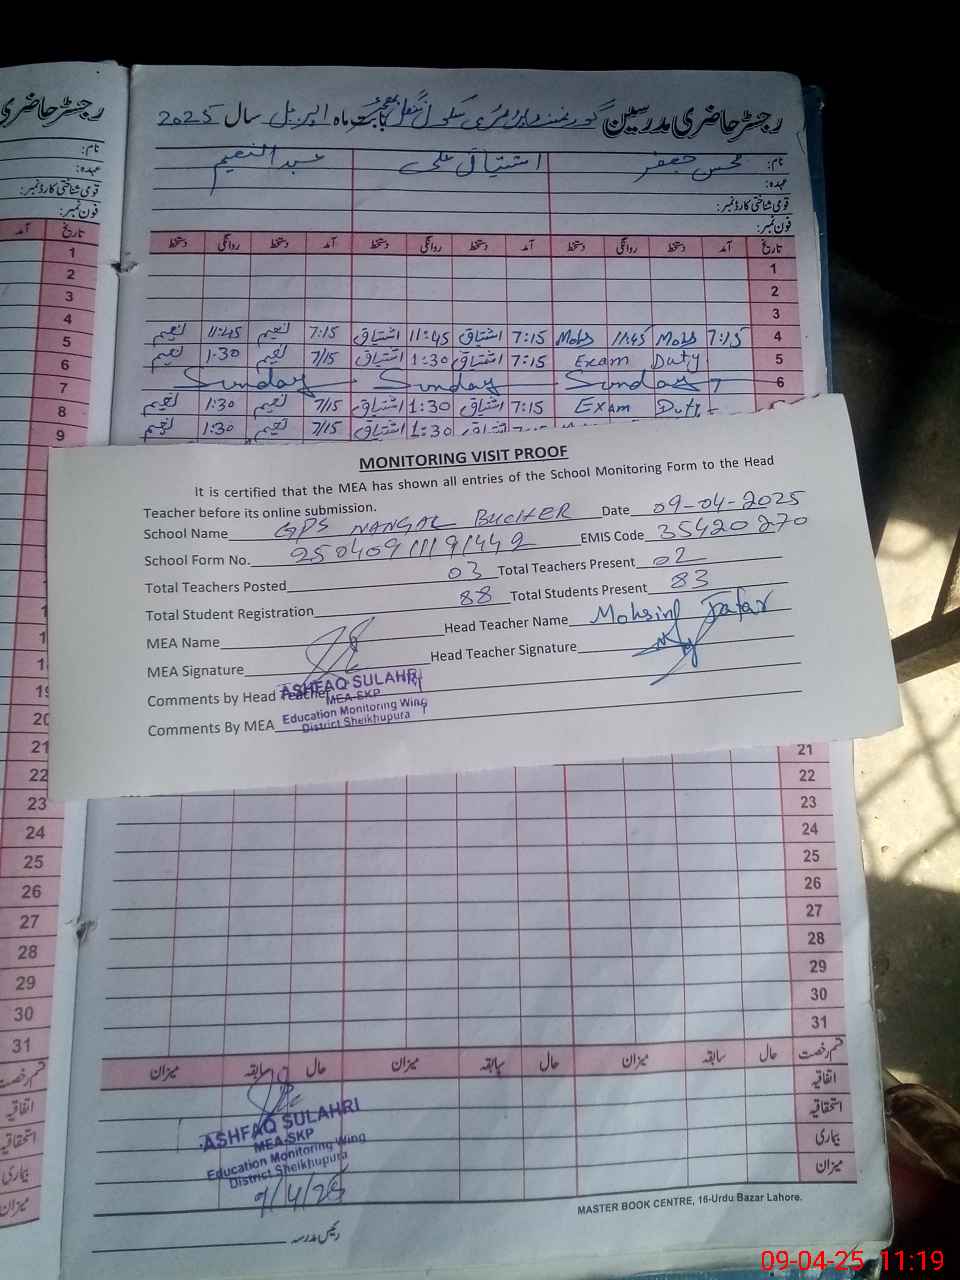 رجسٹر حاضری
نام:
عہدہ:
قومی شناختی کارڈ نمبر:
فون نمبر:
تاریخ آمد
1
2
3
4
5
6
7
8
9
19
20
21
22
23
24
25
26
27
28
29
30
31
قسم رخصت
اتفاقیہ
استحقاقیہ
بیماری
میزان
رجسٹر حاضری مدرسین گورنمنٹ پرائمری سکول ننگل بابت ماہ اپریل سال 2025
نام: محسن جعفر اشتیاق علی عبدالنعیم
عہدہ:
قومی شناختی کارڈ نمبر:
فون نمبر:
تاریخ آمد دستخط روانگی دستخط آمد دستخط روانگی دستخط آمد دستخط روانگی دستخط
1
2
3
4 7:15 Mohs 11:45 Mohs 7:15 اشتیاق 11:45 اشتیاق 7:15 نعیم 11:45 نعیم
5 Exam Duty 7:15 اشتیاق 1:30 اشتیاق 7/15 نعیم 1:30 نعیم
6 Sunday Sunday Sunday
Exam Duty 7:15 اشتیاق 1:30 اشتیاق 7/15 نعیم 1:30 نعیم
اشتیاق 1:30 اشتیاق 7/15 نعیم 1:30 نعیم
MONITORING VISIT PROOF
It is certified that the MEA has shown all entries of the School Monitoring Form to the Head
Teacher before its online submission.
School Name GPS NANGAL BUCHER Date 09-04-2025
School Form No. EMIS Code 35420270
Total Teachers Posted 03 Total Teachers Present 02
Total Student Registration 88 Total Students Present 83
MEA Name Head Teacher Name Mohsin Jafar
MEA Signature Head Teacher Signature
Comments by Head Teacher
Comments By MEA
ASHFAQ SULAHRI
MEA-SKP
Education Monitoring Wing
District Sheikhupura
21
22
23
24
25
26
27
28
29
30
31
قسم رخصت حال سابقہ میزان حال سابقہ میزان حال سابقہ میزان
اتفاقیہ
استحقاقیہ
بیماری
میزان
ASHFAQ SULAHRI
MEA-SKP
Education Monitoring Wing
District Sheikhupura
9/4/25
MASTER BOOK CENTRE, 16-Urdu Bazar Lahore.
رئیس مدرسہ
09-04-25 11:19